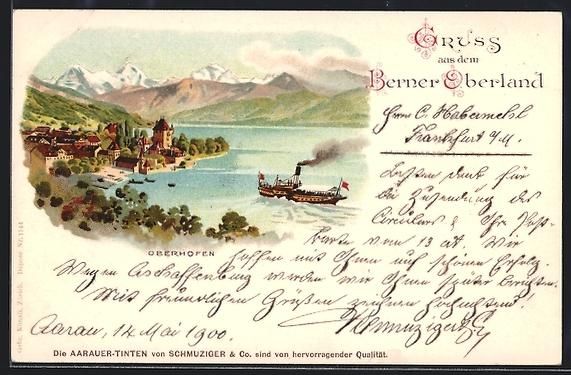 Gruss
aus dem
Berner Oberland
Herrn C. Habermehl
Frankfurt a/M.
Besten Dank für
die Zusendung des
Circulars & Ihr Post-
karte vom 13 ct. Wir
OBERHOFEN
hoffen mit Ihnen auf schönen Erfolg.
Wegen Aschaffenburg werden wir Ihnen später berichten.
Mit freundlichen Grüßen zeichnen hochachtend.
Aarau, 14 Mai 1900.
Schmuziger & Co
Die AARAUER-TINTEN von SCHMUZIGER & Co. sind von hervorragender Qualität.
Gebr. Künzli, Zürich. Dépose Nr. 1144